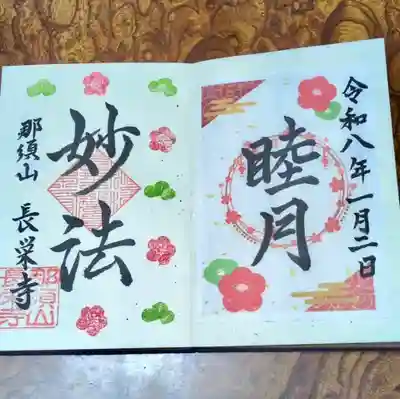 令和八年一月二日
睦月
妙法
那須山 長栄寺
那須山
長栄寺